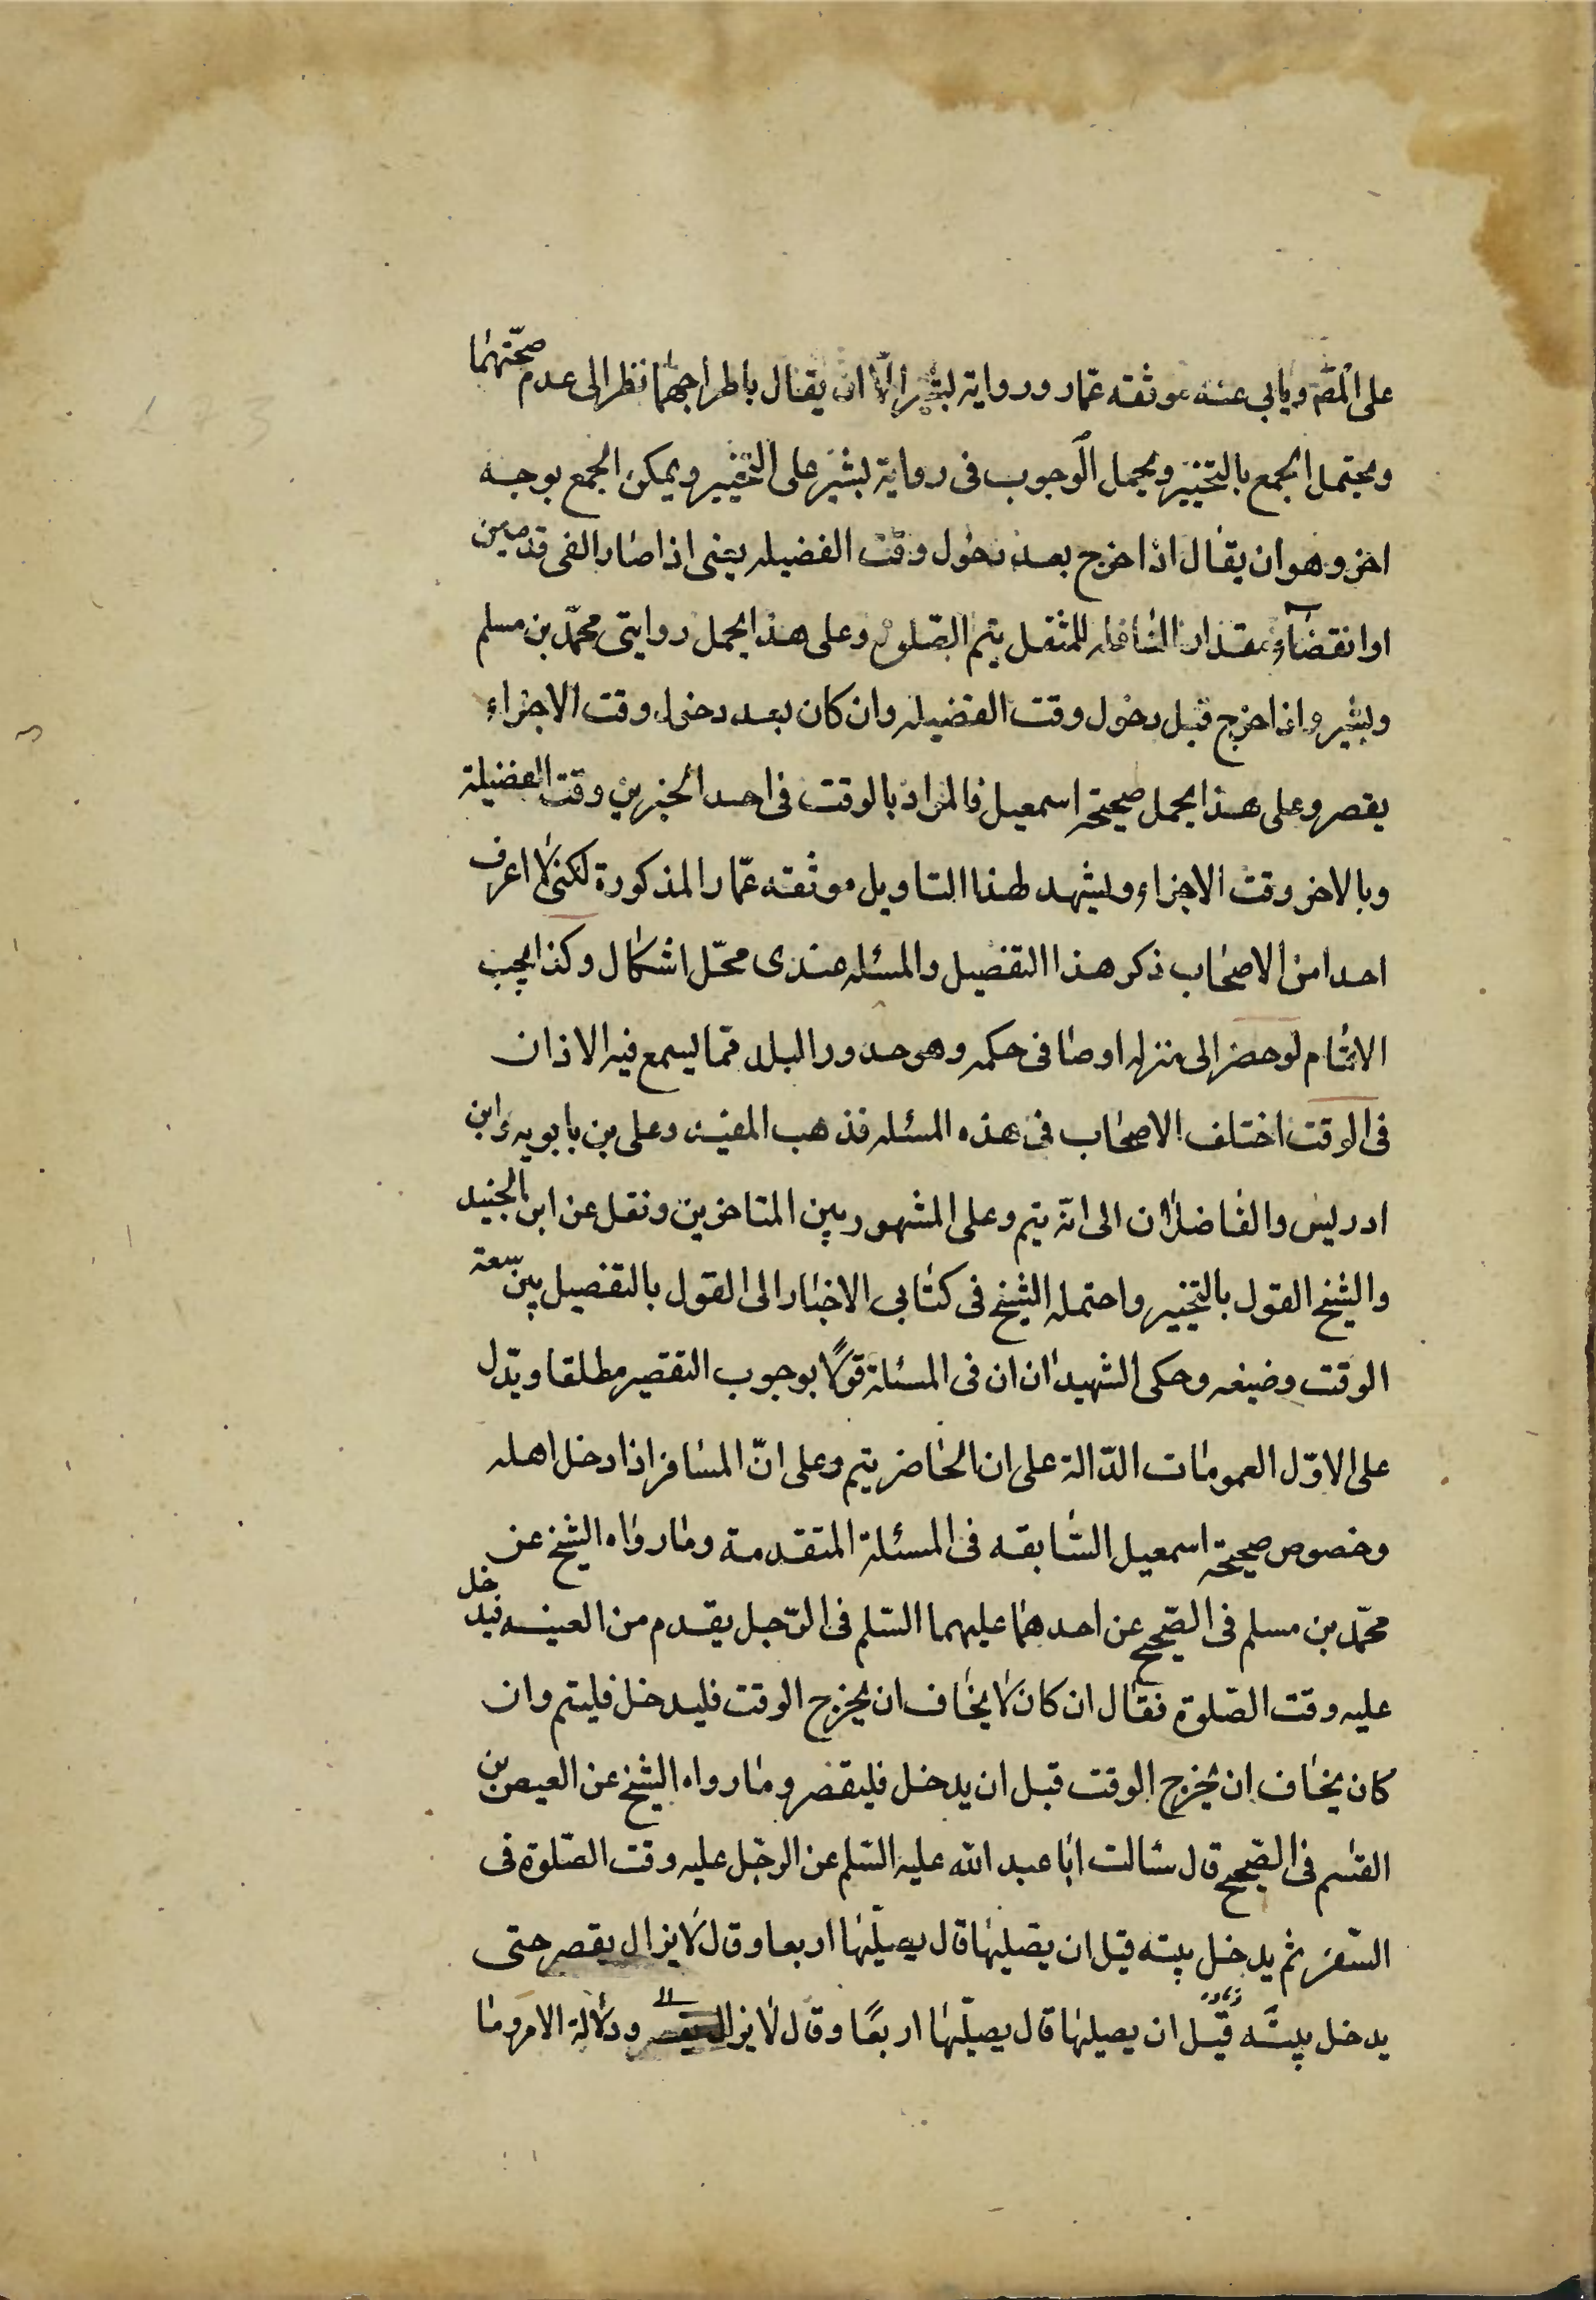 على المقم ويابى عنه موثقه عمار ورواية بشير الا ان يقال باطراحهما نظرا الى عدم صحتهما
ويحتمل الجمع بالتخيير ويحمل الوجوب فى رواية بشير على التخيير ويمكن الجمع بوجه
اخر وهو ان يقال اذا خرج بعد دخول وقت الفضيله يعنى اذا صار الفى قدمين
او انقضاء مقدار النافله للمثفل يتم الصلوة وعلى هذا يحمل روايتى محمد بن مسلم
وبشير واذا خرج قبل دخول وقت الفضيله وان كان بعد دخول وقت الاجزاء
يقصر وعلى هذا يحمل صحيحة اسمعيل فالمراد بالوقت فى احد الخبرين وقت الفضيلة
وبالاخر وقت الاجزاء ويشهد لهذا التاويل موثقه عمار المذكورة لكنى لا اعرف
احدا من الاصحاب ذكر هذا التفصيل والمسئله عندى محل اشكال وكذا يجب
الاتمام لو حضر الى منزله او صافى حكمه وهو حدور البلد مما يسمع فيه الاذان
فى الوقت اختلف الاصحاب فى هذه المسئله فذهب المفيد وعلى بن بابويه وابن
ادريس والفاضلان الى انه يتم وعلى المشهور بين المتاخرين ونقل عن ابن الجنيد
والشيخ القول بالتخيير واحتمله الشيخ فى كتابى الاخبار الى القول بالتفصيل بين سعة
الوقت وضيغه وحكى الشهيدان ان فى المسئلة قولا بوجوب التقصير مطلقا ويدل
على الاول العمومات الدالة على ان الحاضر يتم وعلى ان المسافر اذا دخل اهله
وخصوص صحيحة اسمعيل السابقه فى المسئلة المتقدمة وما رواه الشيخ عن
محمد بن مسلم فى الصحيح عن احدهما عليهما السلم فى الرجل يقدم من الغيبه فيدخل
عليه وقت الصلوة فقال ان كان لا يخاف ان يخرج الوقت فليدخل فليتم وان
كان يخاف ان يخرج الوقت قبل ان يدخل فليقصر وما رواه الشيخ عن العيص بن
القسم فى الصحيح قال سئالت ابا عبد الله عليه السلم عن الرجل عليه وقت الصلوة فى
السفر ثم يدخل بيته قبل ان يصليها قال يصليها اربعا وقال لا يزال يقصر حتى
يدخل بيته قبل ان يصليها قال يصليها اربعا وقال لا يزال يقصر ودلالة الامر وما